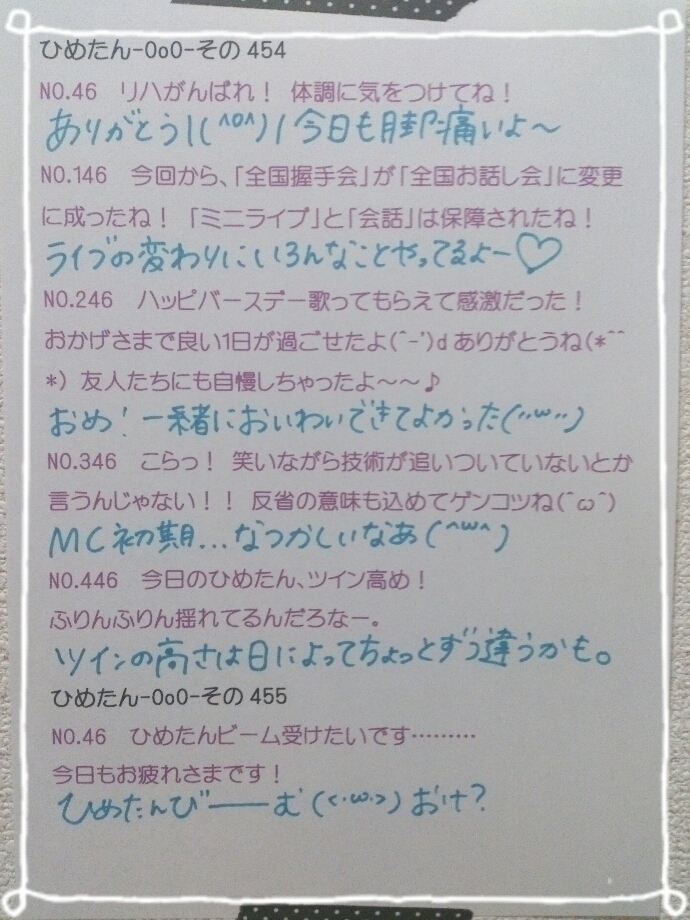 ひめたん-OoO-その454
NO.46 リハがんばれ! 体調に気をつけてね!
ありがとう!(^o^)/今日も脚痛いよ〜
NO.146 今回から、「全国握手会」が「全国お話し会」に変更
に成ったね! 「ミニライブ」と「会話」は保障されたね!
ライブの変わりにいろんなことやってるよー♡
NO.246 ハッピバースデー歌ってもらえて感激だった!
おかげさまで良い1日が過ごせたよ(^-')dありがとうね(*^^
*) 友人たちにも自慢しちゃったよ〜〜♪
おめ!一緒においわいできてよかった(''ω'')
NO.346 こらっ! 笑いながら技術が追いついていないとか
言うんじゃない!! 反省の意味も込めてゲンコツね(^ω^)
MC初期...なつかしいなあ(^ω^)
NO.446 今日のひめたん、ツイン高め!
ふりんふりん揺れてるんだろなー。
ツインの高さは日によってちょっとずつ違うかも。
ひめたん-OoO-その455
NO.46 ひめたんビーム受けたいです………
今日もお疲れさまです!
ひめたんびーーむ(<・ω・>)おけ?